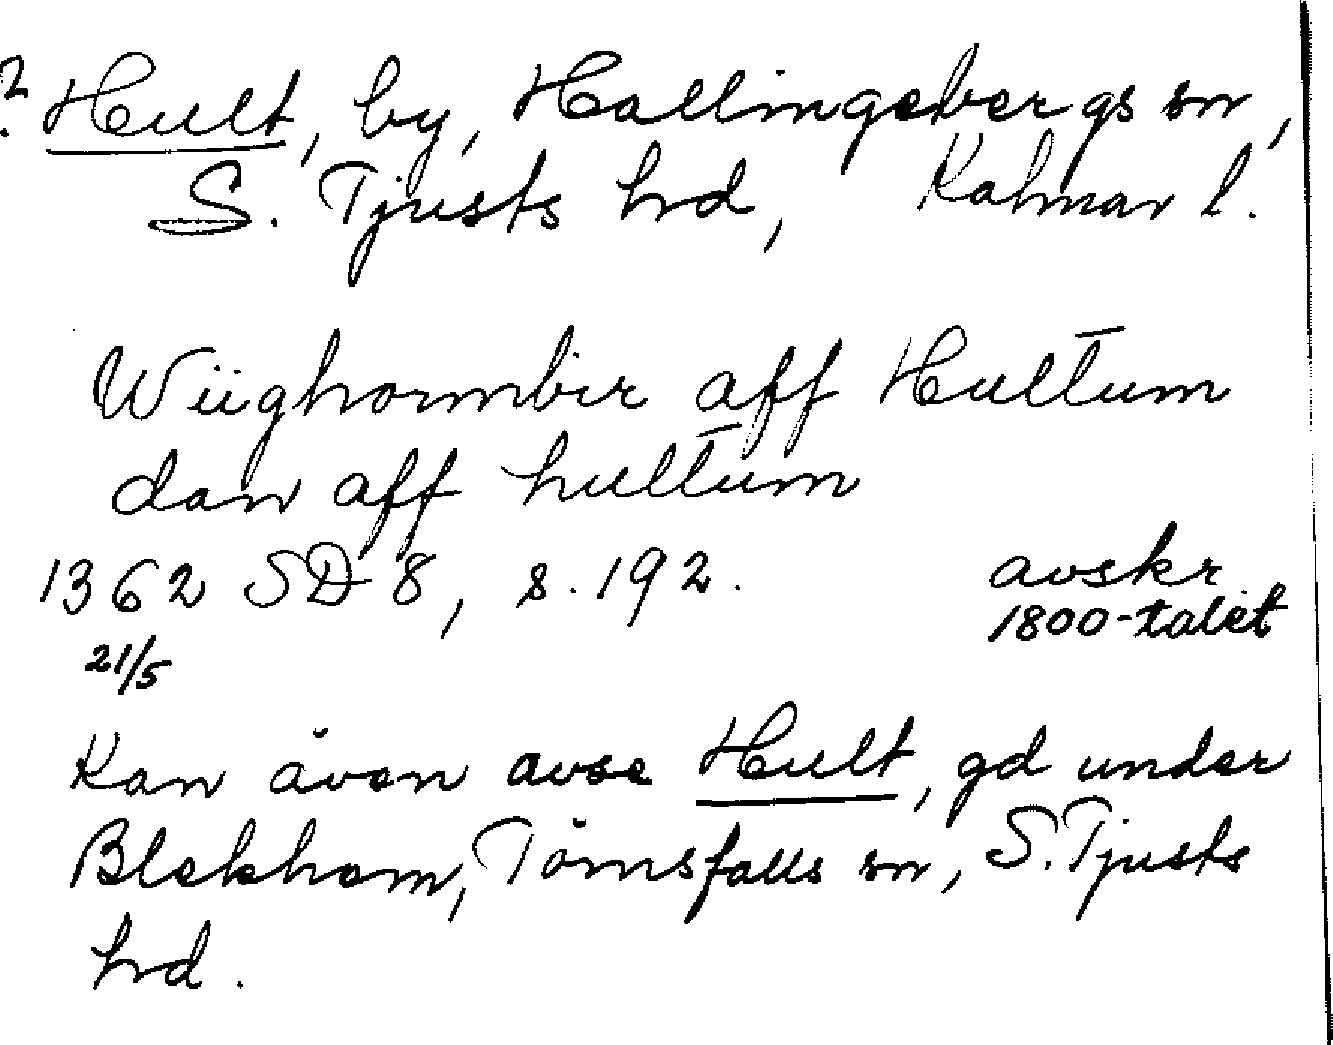 ? Hult, by, Hallingebergs sn,
S. Tjusts hrd, Kalmar l.
Wiighormbir aff Hultum̅
dan aff hultum̅
1362 SD 8, s. 192. avskr.
21/5 1800-talet
Kan även avse Hult, gd under
Blekhem, Törnsfalls sn, S. Tjusts
hrd.